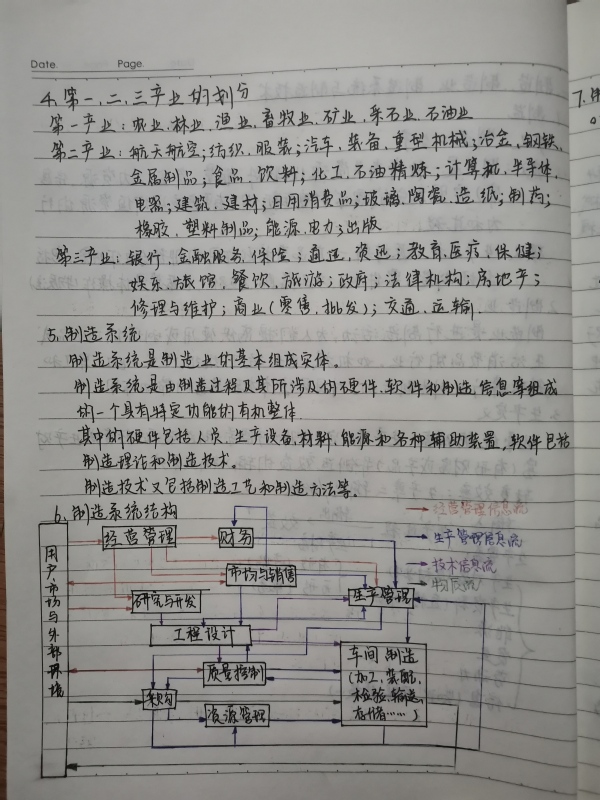 Date.
Page.
4、第一、二、三产业的划分
第一产业：农业、林业、渔业、畜牧业、矿业、采石业、石油业
第二产业：航天航空；纺织、服装；汽车、装备、重型机械；冶金、钢铁、
金属制品；食品、饮料；化工、石油精炼；计算机、半导体、
电器；建筑、建材；日用消费品；玻璃、陶瓷、造纸；制药；
橡胶、塑料制品；能源、电力；出版
第三产业：银行、金融服务、保险；通迅、资迅；教育、医疗、保健；
娱乐、旅馆、餐饮、旅游；政府；法律机构；房地产；
修理与维护；商业（零售、批发）；交通、运输.
5、制造系统
制造系统是制造业的基本组成实体。
制造系统是由制造过程及其所涉及的硬件、软件和制造信息等组成
的一个具有特定功能的有机整体.
其中的硬件包括人员、生产设备、材料、能源和各种辅助装置，软件包括
制造理论和制造技术。
制造技术又包括制造工艺和制造方法等。
6、制造系统结构
用户、市场与外部环境
经营管理
财务
市场与销售
研究与开发
生产管理
工程设计
质量控制
采购
资源管理
车间制造
（加工、装配、
检验、输送、
存储……）
经营管理信息流
生产管理信息流
技术信息流
物质流
7、